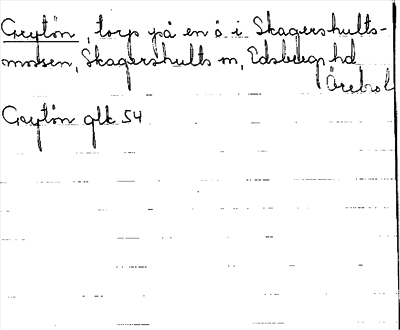 Greytön, torp på en ö i Skagershults-
mossen, Skagershults sn, Edsbergs hd
Örebro l
Greytön glk 54